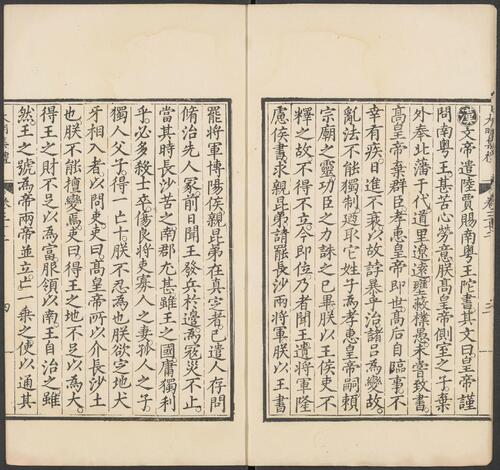 大明集禮 卷三十二
漢文帝遣陸賈賜南粵王陀書其文曰皇帝謹
問南粵王甚苦心勞意朕高皇帝側室之子棄
外奉北藩于代道里遼遠壅蔽樸愚未嘗致書
高皇帝棄群臣孝惠皇帝即世高后自臨事不
幸有疾日進不衰以故誖暴乎治諸呂為變故
亂法不能獨制迺取它姓子為孝惠皇帝嗣賴
宗廟之靈功臣之力誅之已畢朕以王侯吏不
釋之故不得不立今即位乃者聞王遺將軍隆
慮侯書求親昆弟請罷長沙兩將軍朕以王書
罷將軍博陽侯親昆弟在真定者已遣人存問
脩治先人冢前日聞王發兵於邊為寇災不止
當其時長沙苦之南郡尤甚雖王之國庸獨利
乎必多殺士卒傷良將吏寡人之妻孤人之子
獨人父子得一亡十朕不忍為也朕欲定地犬
牙相入者以問吏吏曰高皇帝所以介長沙土
也朕不能擅變焉吏曰得王之地不足以為大
得王之財不足以為富服領以南王自治之雖
然王之號為帝兩帝並立亡一乘之使以通其
大明集禮 卷三十二 四